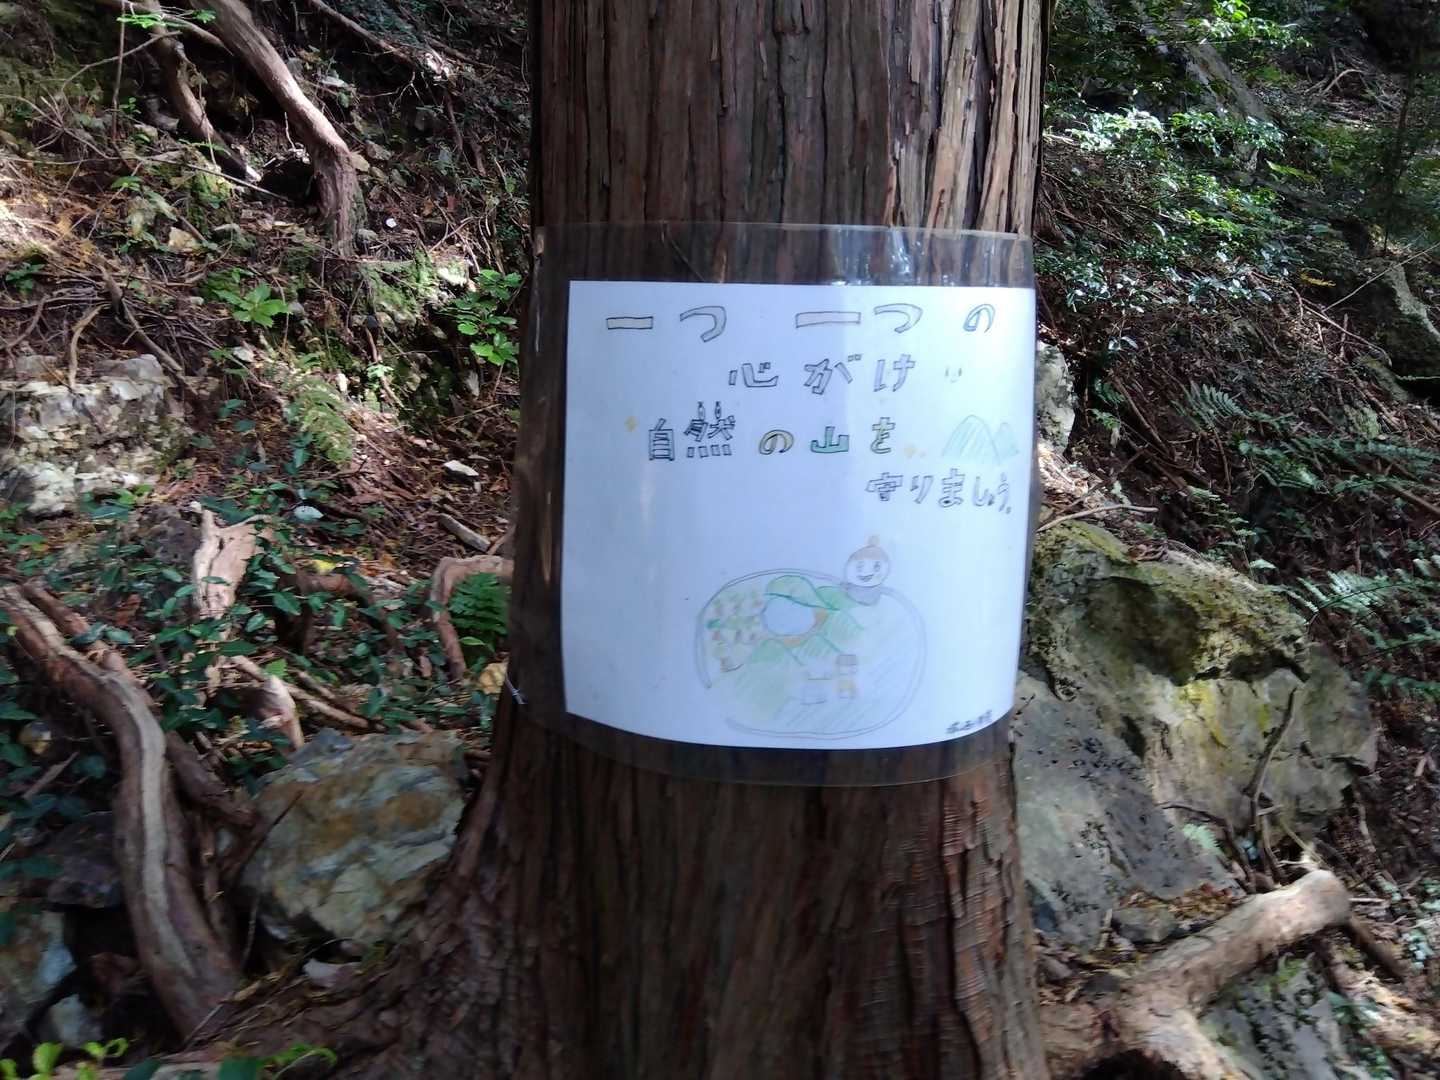 一つ 一つ の
心がけ
自然の山を
守りましょう。